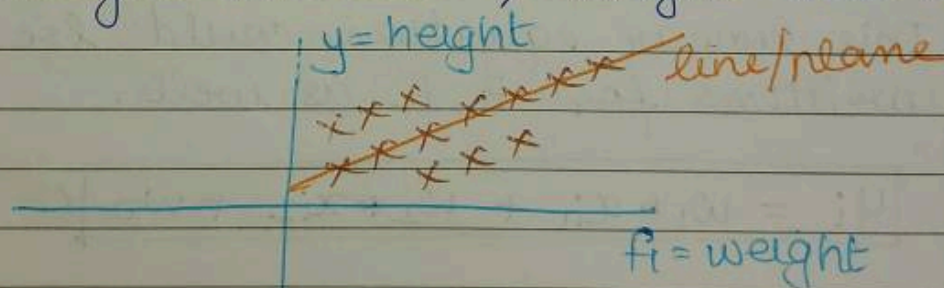 y = height
line/plane
f1 = weight